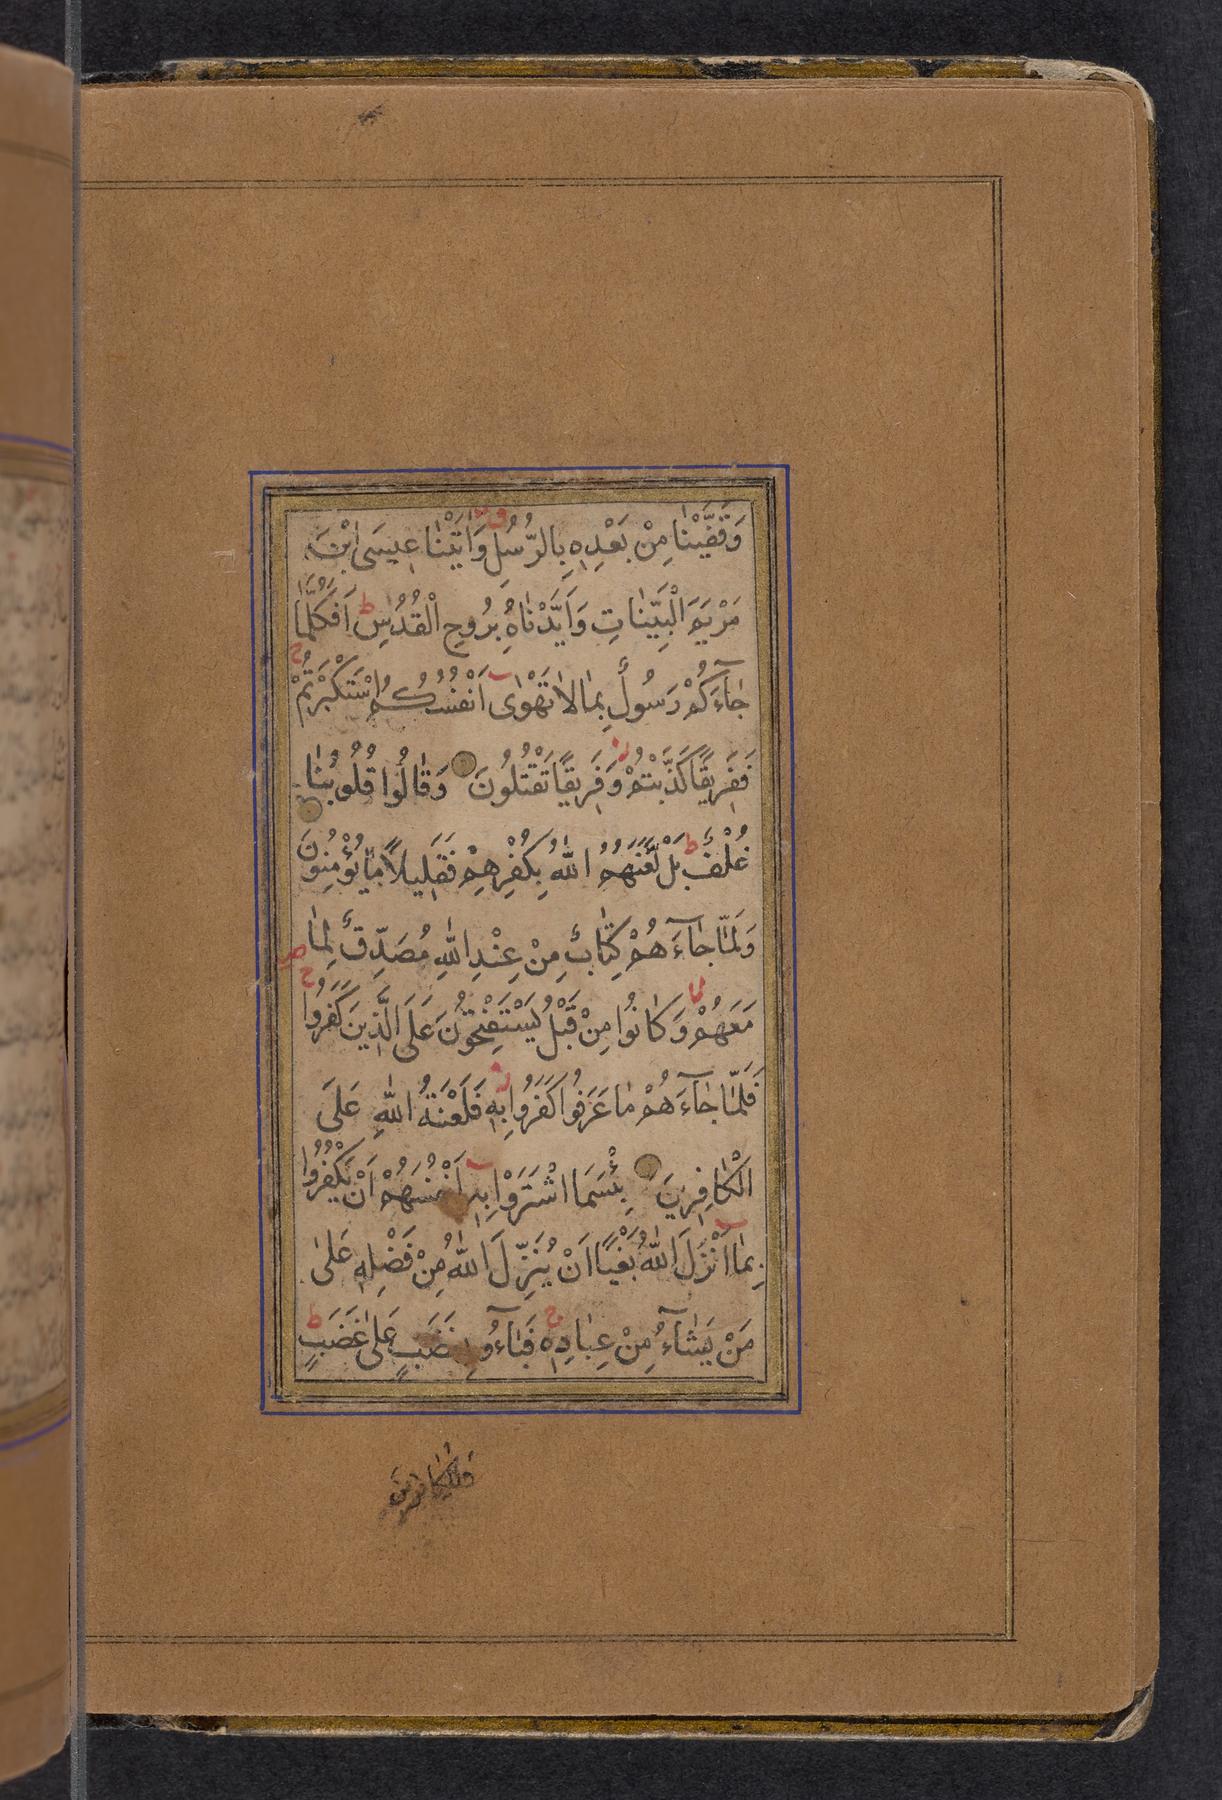 وَقَفَّيْنَا مِنْ بَعْدِهِ بِالرُّسُلِ وَاٰتَيْنَا عِيسَى ابْنَ
مَرْيَمَ الْبَيِّنَاتِ وَاَيَّدْنَاهُ بِرُوحِ الْقُدُسِ ط اَفَكُلَّمَا
جَآءَكُمْ رَسُولٌ بِمَا لَا تَهْوٰى اَنْفُسُكُمُ اسْتَكْبَرْتُمْ ج
فَفَرِيقًا كَذَّبْتُمْ وَفَرِيقًا تَقْتُلُونَ وَقَالُوا قُلُوبُنَا
غُلْفٌ ط بَلْ لَعَنَهُمُ اللّٰهُ بِكُفْرِهِمْ فَقَلِيلًا مَّا يُؤْمِنُونَ
وَلَمَّا جَآءَهُمْ كِتَابٌ مِنْ عِنْدِ اللّٰهِ مُصَدِّقٌ لِمَا
مَعَهُمْ وَكَانُوا مِنْ قَبْلُ يَسْتَفْتِحُونَ عَلَى الَّذِينَ كَفَرُوا ج
فَلَمَّا جَآءَهُمْ مَا عَرَفُوا كَفَرُوا بِهِ فَلَعْنَةُ اللّٰهِ عَلَى
الْكَافِرِينَ بِئْسَمَا اشْتَرَوْا بِهِ اَنْفُسَهُمْ اَنْ يَكْفُرُوا
بِمَآ اَنْزَلَ اللّٰهُ بَغْيًا اَنْ يُنَزِّلَ اللّٰهُ مِنْ فَضْلِهِ عَلٰى
مَنْ يَشَآءُ مِنْ عِبَادِهِ ج فَبَآءُو بِغَضَبٍ عَلٰى غَضَبٍ ط
وَلِلْكَافِرِينَ